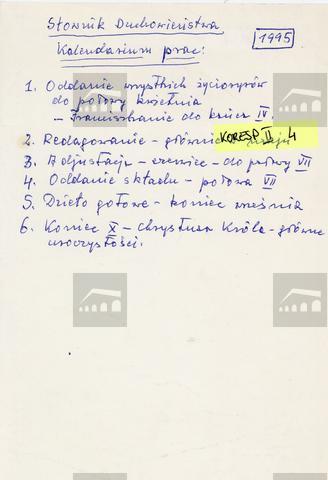 Słownik Duchowieństwa
1995
Kalendarium prac:
1. Oddanie wszystkich życiorysów
do połowy kwietnia
do końca IV.
2. Redagowanie – głównie
KORESP. II. 4
3. Adjustacja – czerwiec – do połowy VII
4. Oddanie składu – połowa VII
5. Dzieło gotowe – koniec września
6. Koniec X – Chrystusa Króla – główne
uroczystości.